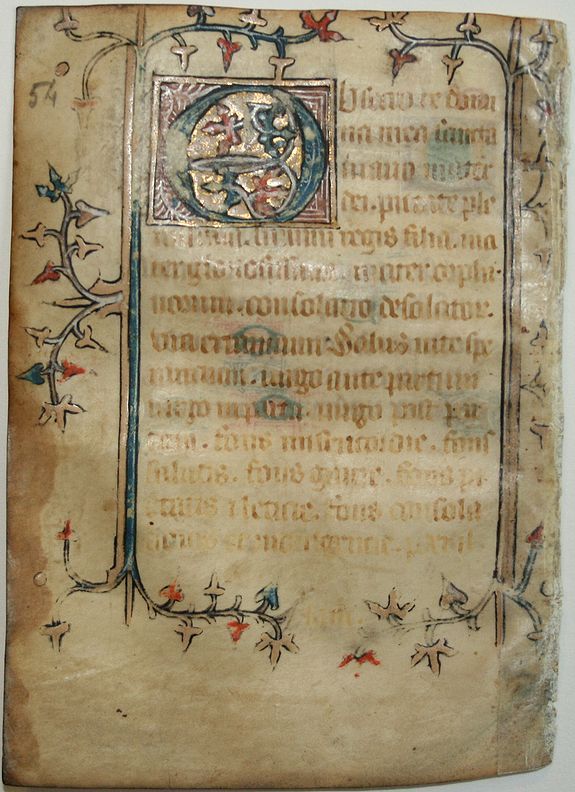 54
Obsecro te domi
na mea sancta
maria mater
dei. pietate ple
nissima. summi regis filia. ma
ter gloriosissima. mater orpha
norum. consolatio desolator.
via errantium. Salus in te spe
rantium. virgo ante partum
virgo in partu. virgo post par
tum. fons misericordie. fons
salutis. fons gracie. fons pi
etatis et leticie. fons consola
tionis et indulgencie.